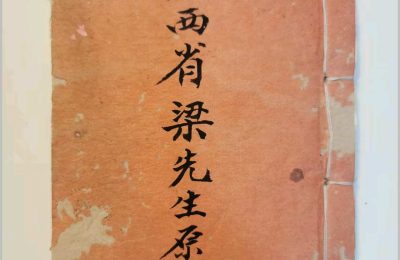 西省梁先生原